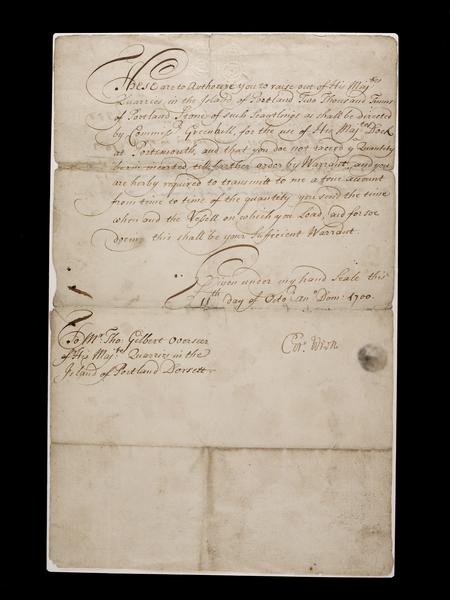 These are to Authorize you to raise out of His Maj^ties
Quarries, in the Island of Portland Two Thousand Tunns
of Portland Stone of such Scantlings as shall be directed
by Commiss^r Greenhill, for the use of His Maj^ties Dock
at Portsmouth, and that you doe not exceed y^e Quantity
herin incerted, till farther order by Warrant, and you
are herby required to transmitt to me a true account
from time to time of the quantity you send the time
when and the Vesell on which you Load, and for soe
doeing this shall be your Sufficient Warrant.
Given under my hand Seale this
11^th day of Octo^r An^o Dom: 1700.
To M^r Tho: Gilbert Overseer
of His Maj^ties Quarries in the
Island of Portland Dorsett
Ch^r. Wren